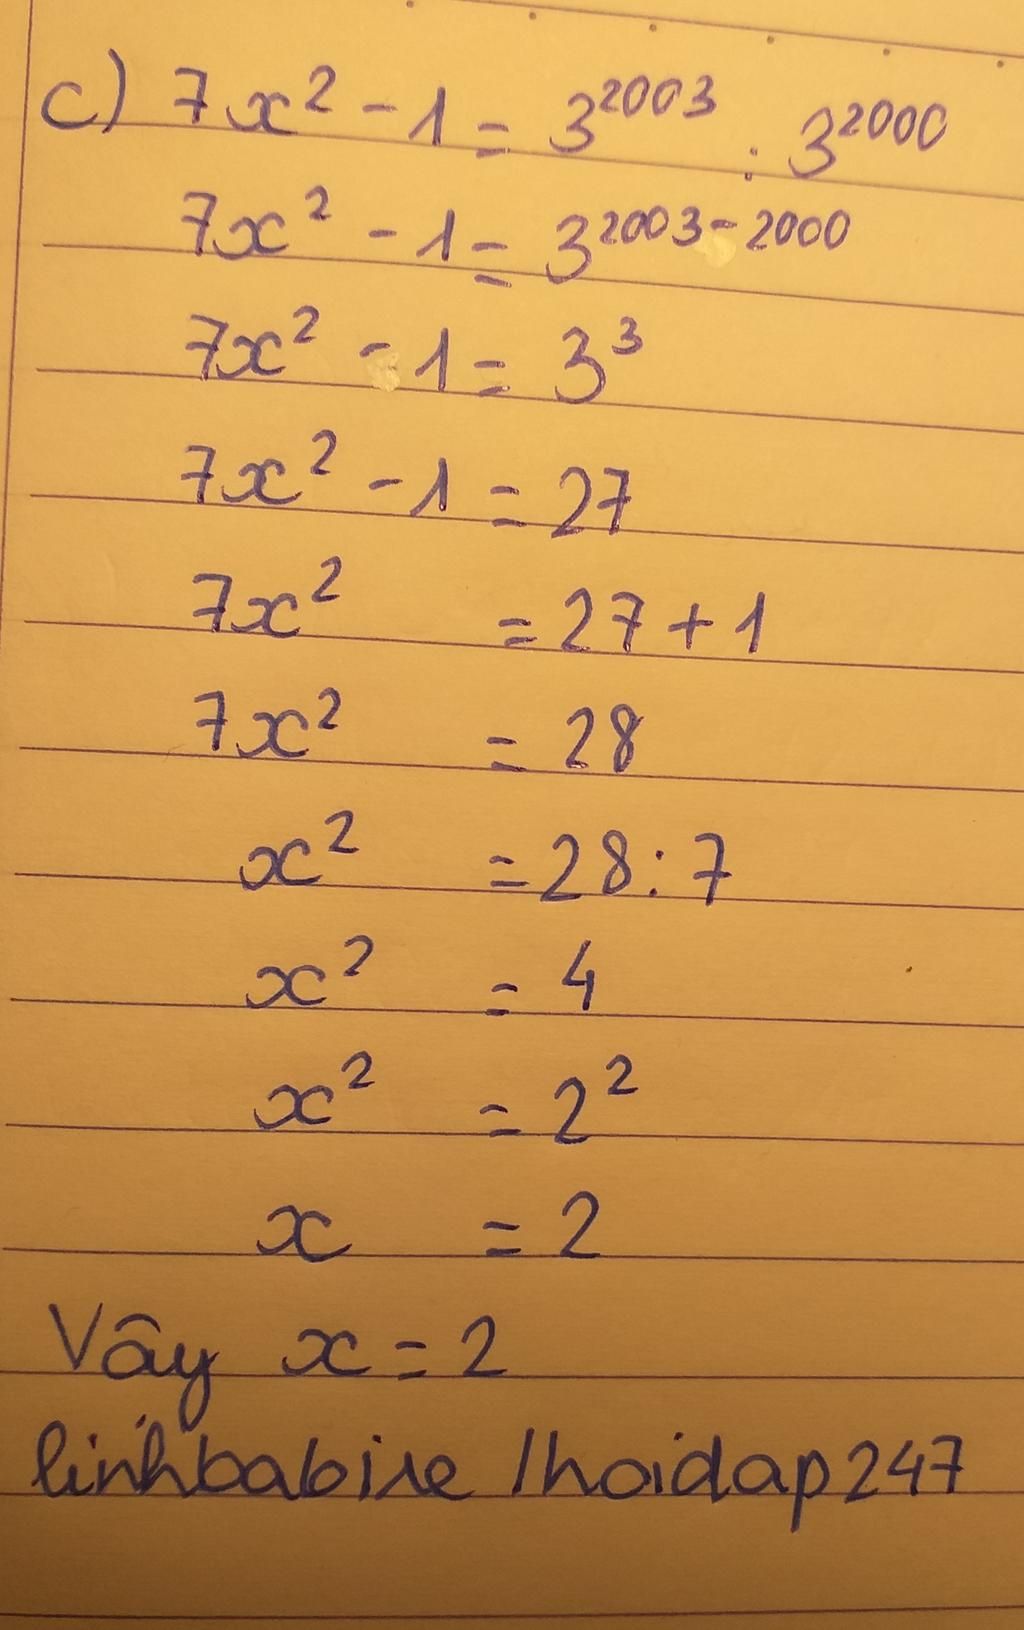 c) 7x² - 1 = 3²⁰⁰³ : 3²⁰⁰⁰
7x² - 1 = 3²⁰⁰³⁻²⁰⁰⁰
7x² - 1 = 3³
7x² - 1 = 27
7x² = 27 + 1
7x² = 28
x² = 28 : 7
x² = 4
x² = 2²
x = 2
Vậy x = 2
linhbabise /hoidap247